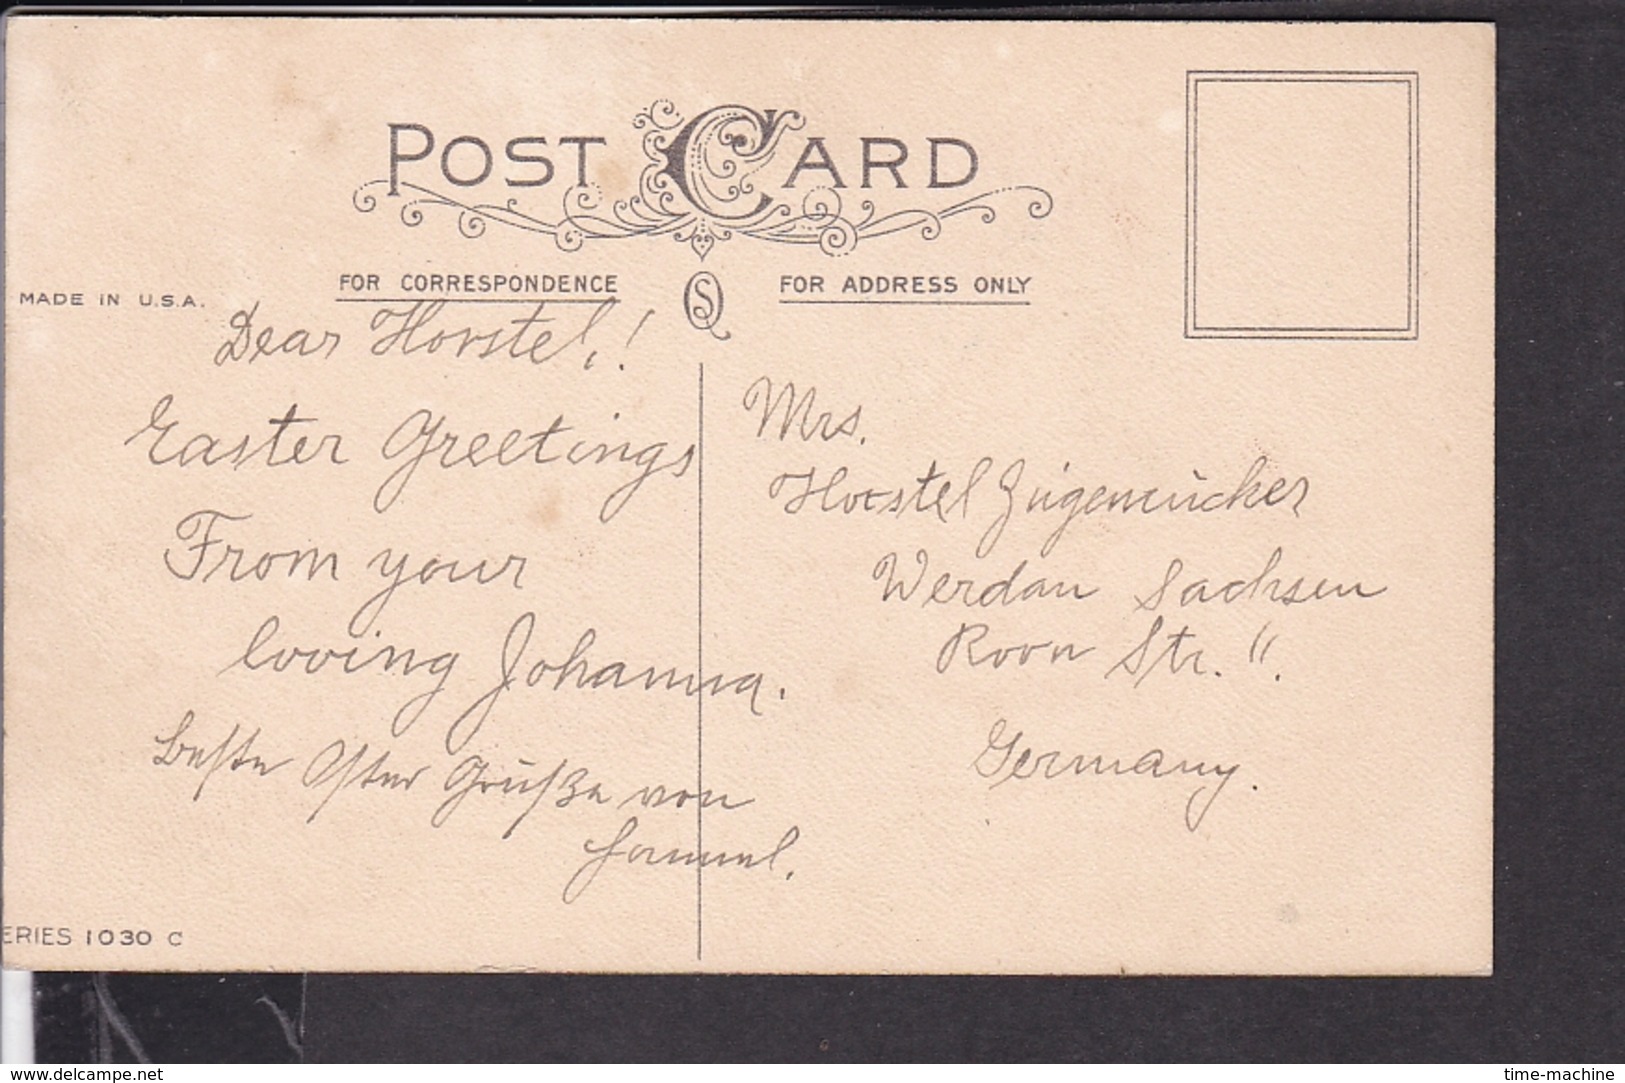 POST CARD
FOR CORRESPONDENCE
FOR ADDRESS ONLY
MADE IN U.S.A.
Dear Horstel!
Easter Greetings
From your
loving Johanna.
Beste Oster Grüße von
Mrs.
Horstel
Werdau Sachsen
Roon Str. 11.
Germany.
ERIES 1030 C
www.delcampe.net
time-machine